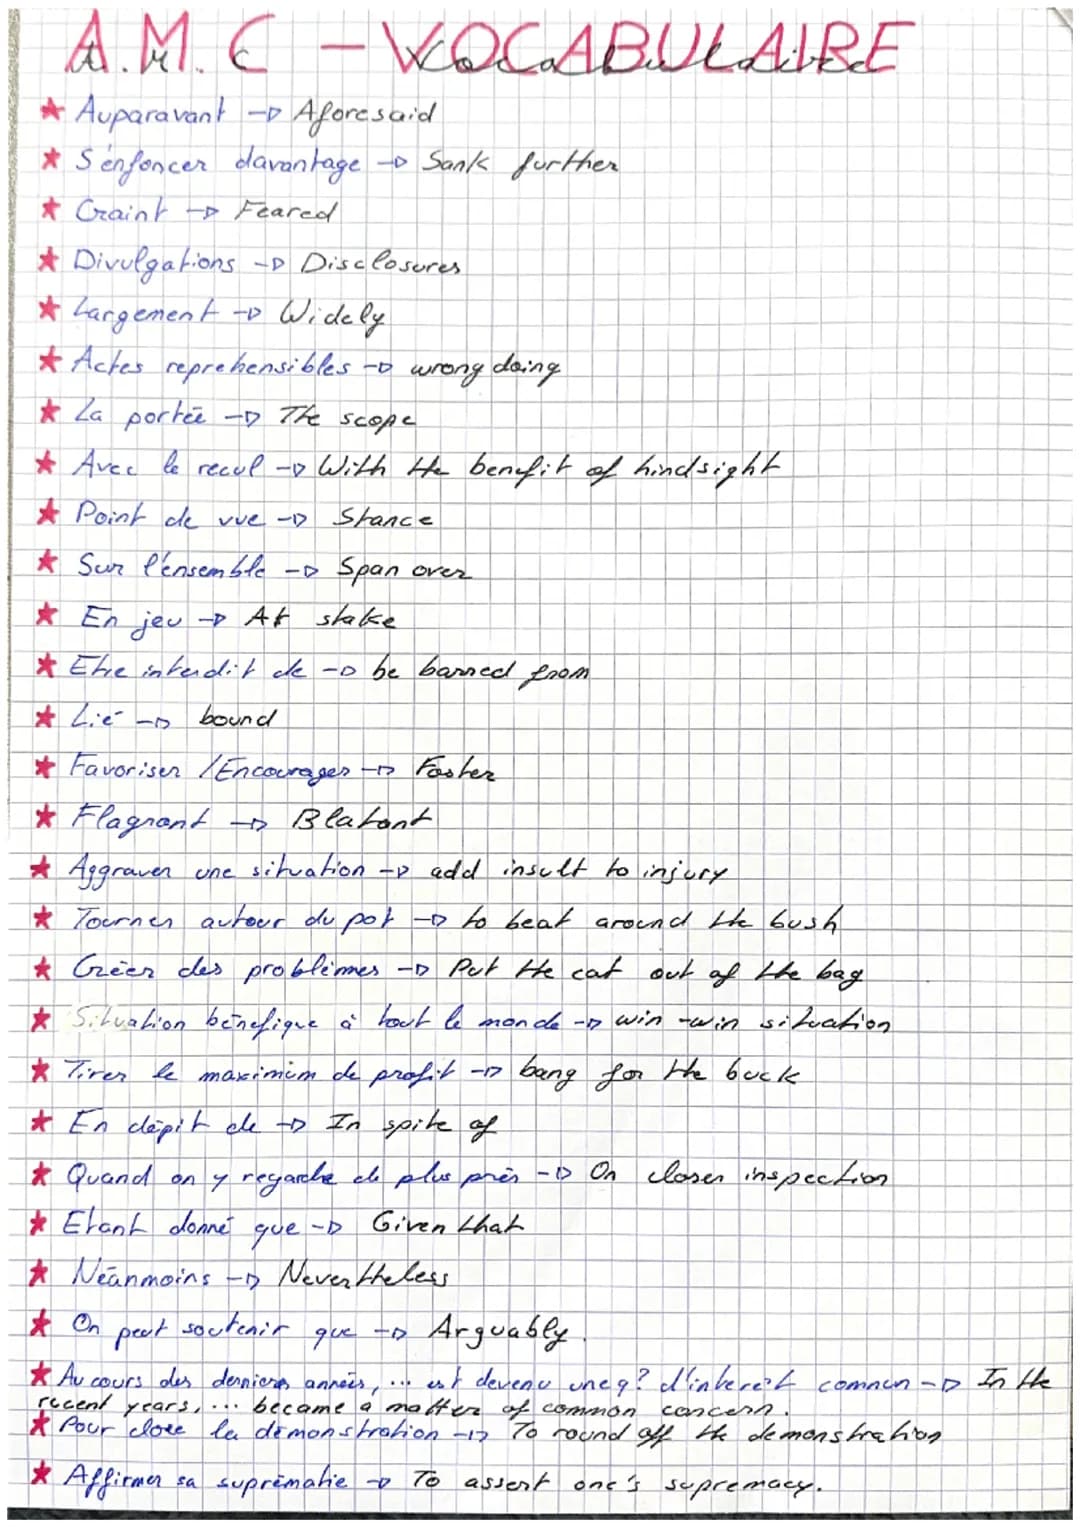 A.M.C - VOCABULAIRE
★ Auparavant → Aforesaid
★ S'enfoncer davantage → Sank further
★ Craint → Feared
★ Divulgations → Disclosures
★ Largement → Widely
★ Actes reprehensibles → wrong doing
★ La portée → The scope
★ Avec le recul → With the benefit of hindsight
★ Point de vue → Stance
★ Sur l'ensemble → Span over
★ En jeu → At stake
★ Etre interdit de → be barred from
★ Lié → bound
★ Favoriser / Encourager → Foster
★ Flagrant → Blatant
★ Aggraver une situation → add insult to injury
★ Tourner autour du pot → to beat around the bush
★ Créer des problèmes → Put the cat out of the bag
★ Situation bénéfique à tout le monde → win-win situation
★ Tirer le maximum de profit → bang for the buck
★ En dépit de → In spite of
★ Quand on y regarde de plus près → On closer inspection
★ Etant donné que → Given that
★ Néanmoins → Nevertheless
★ On peut soutenir que → Arguably.
★ Au cours des derniers années, ... est devenu une q? d'interêt commun → In the
recent years, ... became a matter of common concern.
★ Pour clore la démonstration → To round off the demonstration
★ Affirmer sa suprématie → To assert one's supremacy.